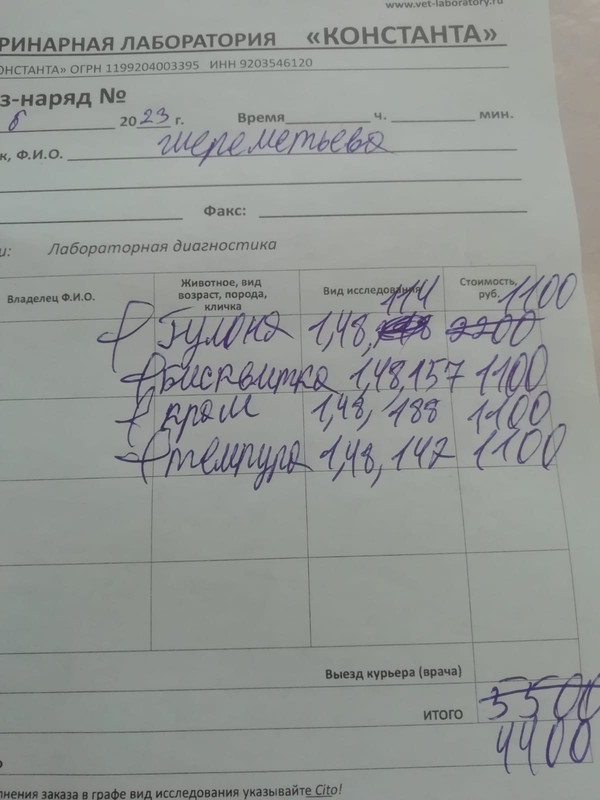 www.vet-laboratory.ru
РИНАРНАЯ ЛАБОРАТОРИЯ «КОНСТАНТА»
ОНСТАНТА» ОГРН 1199204003395 ИНН 9203546120
з-наряд №
6 2023 г. Время ч. мин.
к, Ф.И.О. Шереметьева
Факс:
и: Лабораторная диагностика
Владелец Ф.И.О. Животное, вид возраст, порода, кличка Вид исследования Стоимость, руб.
114 1100
Гулона 1,48, 2200
Бисквитка 1,48,157 1100
крам 1,48, 188 1100
темпура 1,48, 147 1100
Выезд курьера (врача)
ИТОГО 5500
4400
лнения заказа в графе вид исследования указывайте Cito!